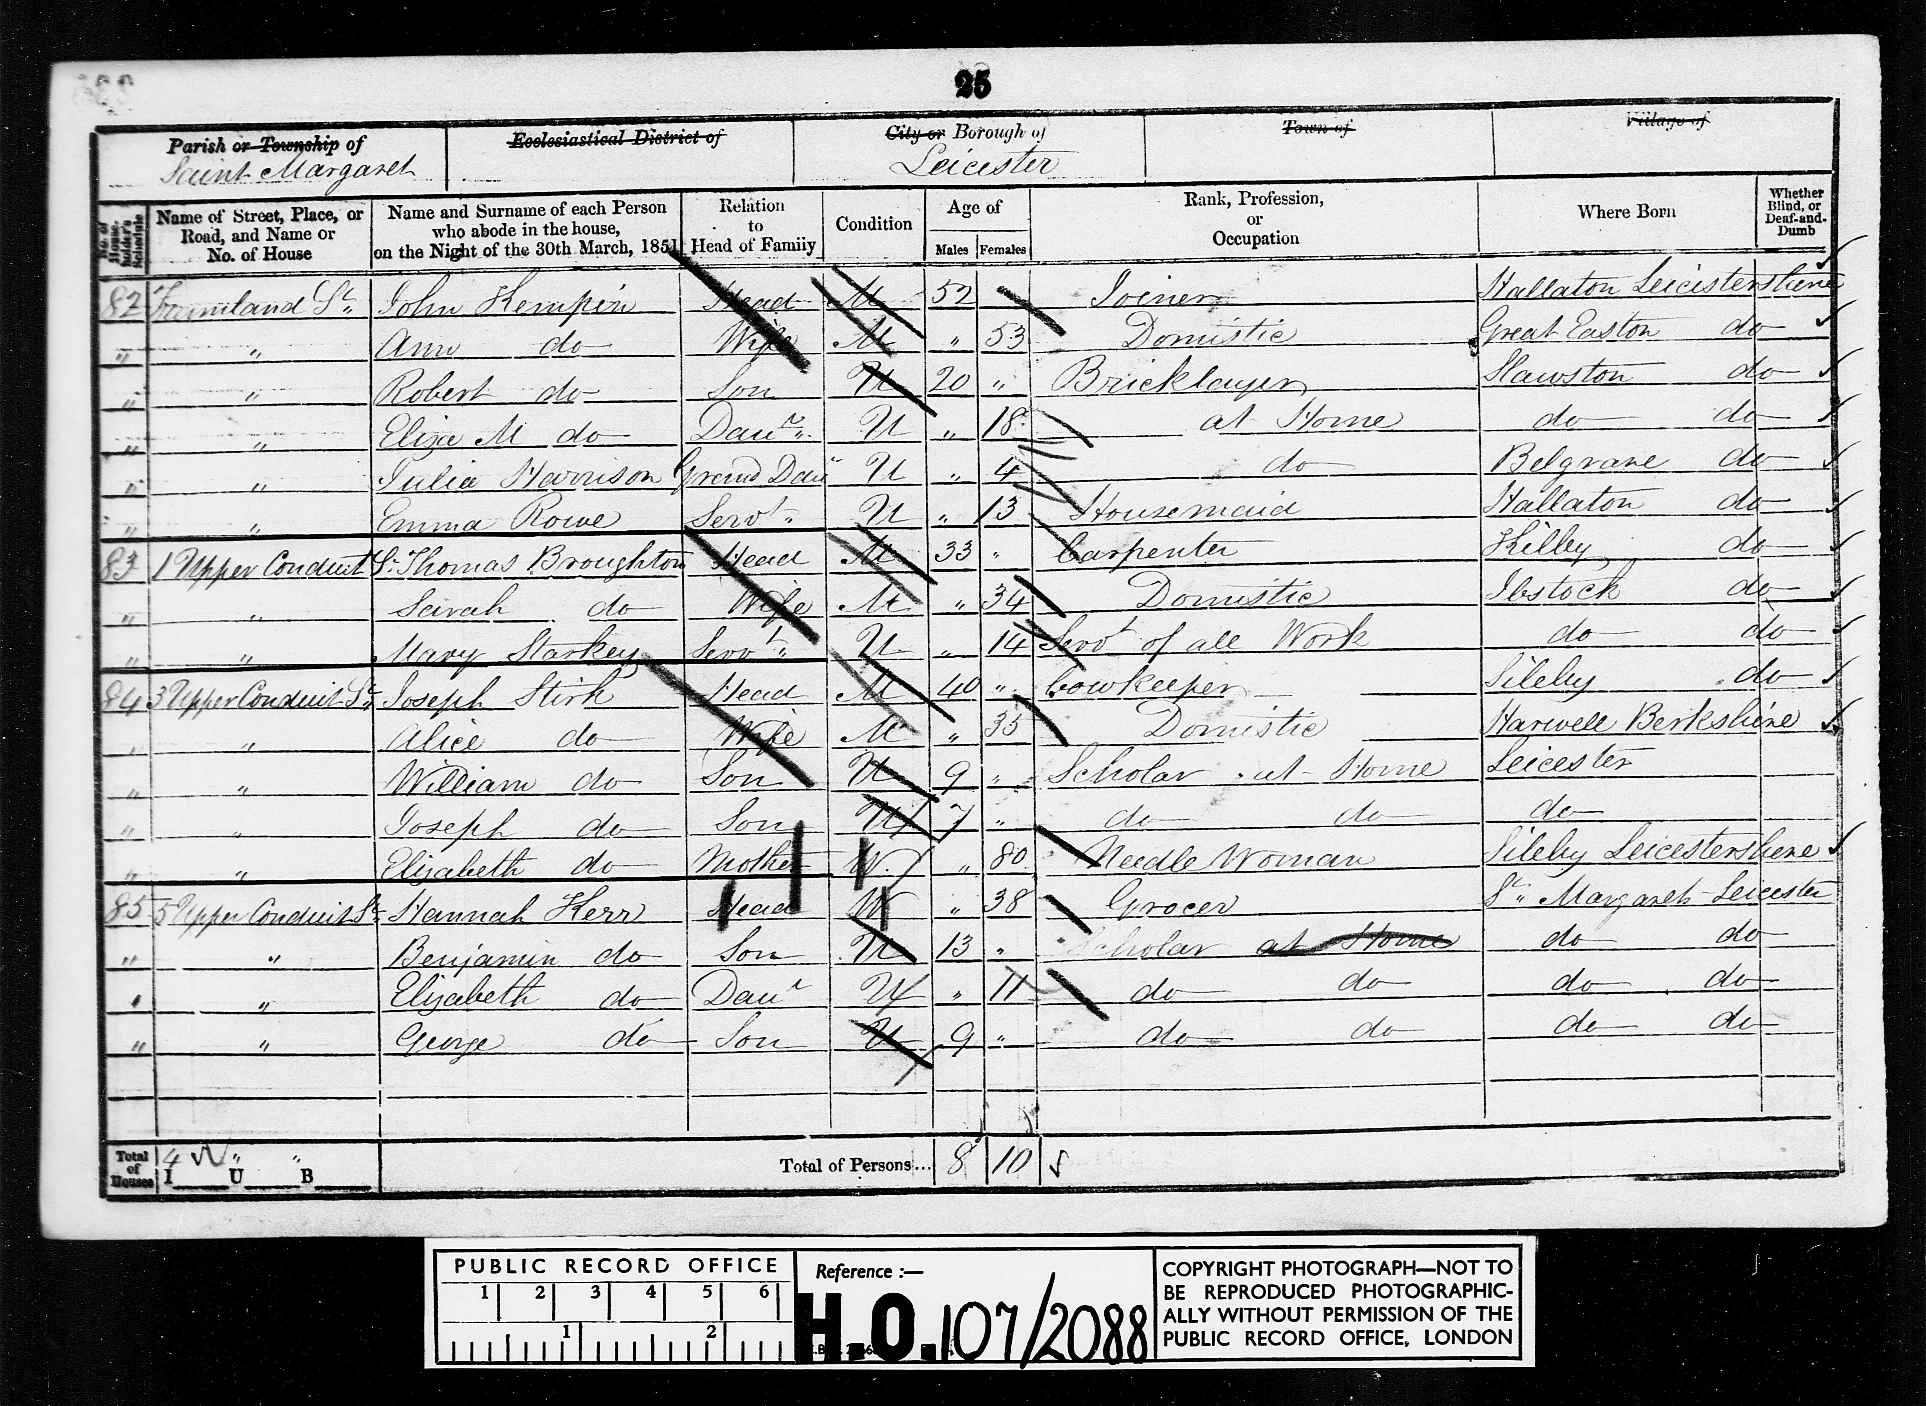 25
Parish or Township of Ecclesiastical District of City or Borough of Town of Village of
Saint Margaret Leicester
No. of House-holder's Schedule Name of Street, Place, or Road, and Name or No. of House Name and Surname of each Person who abode in the house, on the Night of the 30th March, 1851 Relation to Head of Family Condition Age of Males Females Rank, Profession, or Occupation Where Born Whether Blind, or Deaf-and-Dumb
82 St. John Kempin Head M 52 Joiner Hallaton Leicestershire
" " Ann do Wife M " 53 Domistic Great Easton do
" " Robert do Son U 20 " Bricklayer Slawston do
" " Eliza M do Daur. U " 18 at Home do do
" " Julia Harrison Grand Daur U " 4 do Belgrave do
" " Emma Rowe Servt. U " 13 Housemaid Hallaton do
83 1 Upper Conduit St. Thomas Broughton Head M 33 " Carpenter Kilby do
" " Sarah do Wife M " 34 Domistic Ibstock do
" " Mary Starkey Servt. U " 14 Servt of all Work do do
84 3 Upper Conduit St. Joseph Stirk Head M 40 " Cowkeeper Sileby do
" " Alice do Wife M " 35 Domistic Harwell Berkshire
" " William do Son U 9 " Scholar at Home Leicester
" " Joseph do Son U 7 " do do do
" " Elizabeth do Mother W " 80 Needle Woman Sileby Leicestershire
85 5 Upper Conduit St. Hannah Kerr Head W " 38 Grocer St. Margarets Leicester
" " Benjamin do Son U 13 " Scholar at Home do do
" " Elizabeth do Daur U " 11 do do do do
" " George do Son U 9 " do do do do
Total of Houses 4 I " U " B Total of Persons... 8 10
PUBLIC RECORD OFFICE
1 2 3 4 5 6
1 2
Reference :—
H.O. 107/2088
COPYRIGHT PHOTOGRAPH—NOT TO
BE REPRODUCED PHOTOGRAPHIC-
ALLY WITHOUT PERMISSION OF THE
PUBLIC RECORD OFFICE, LONDON